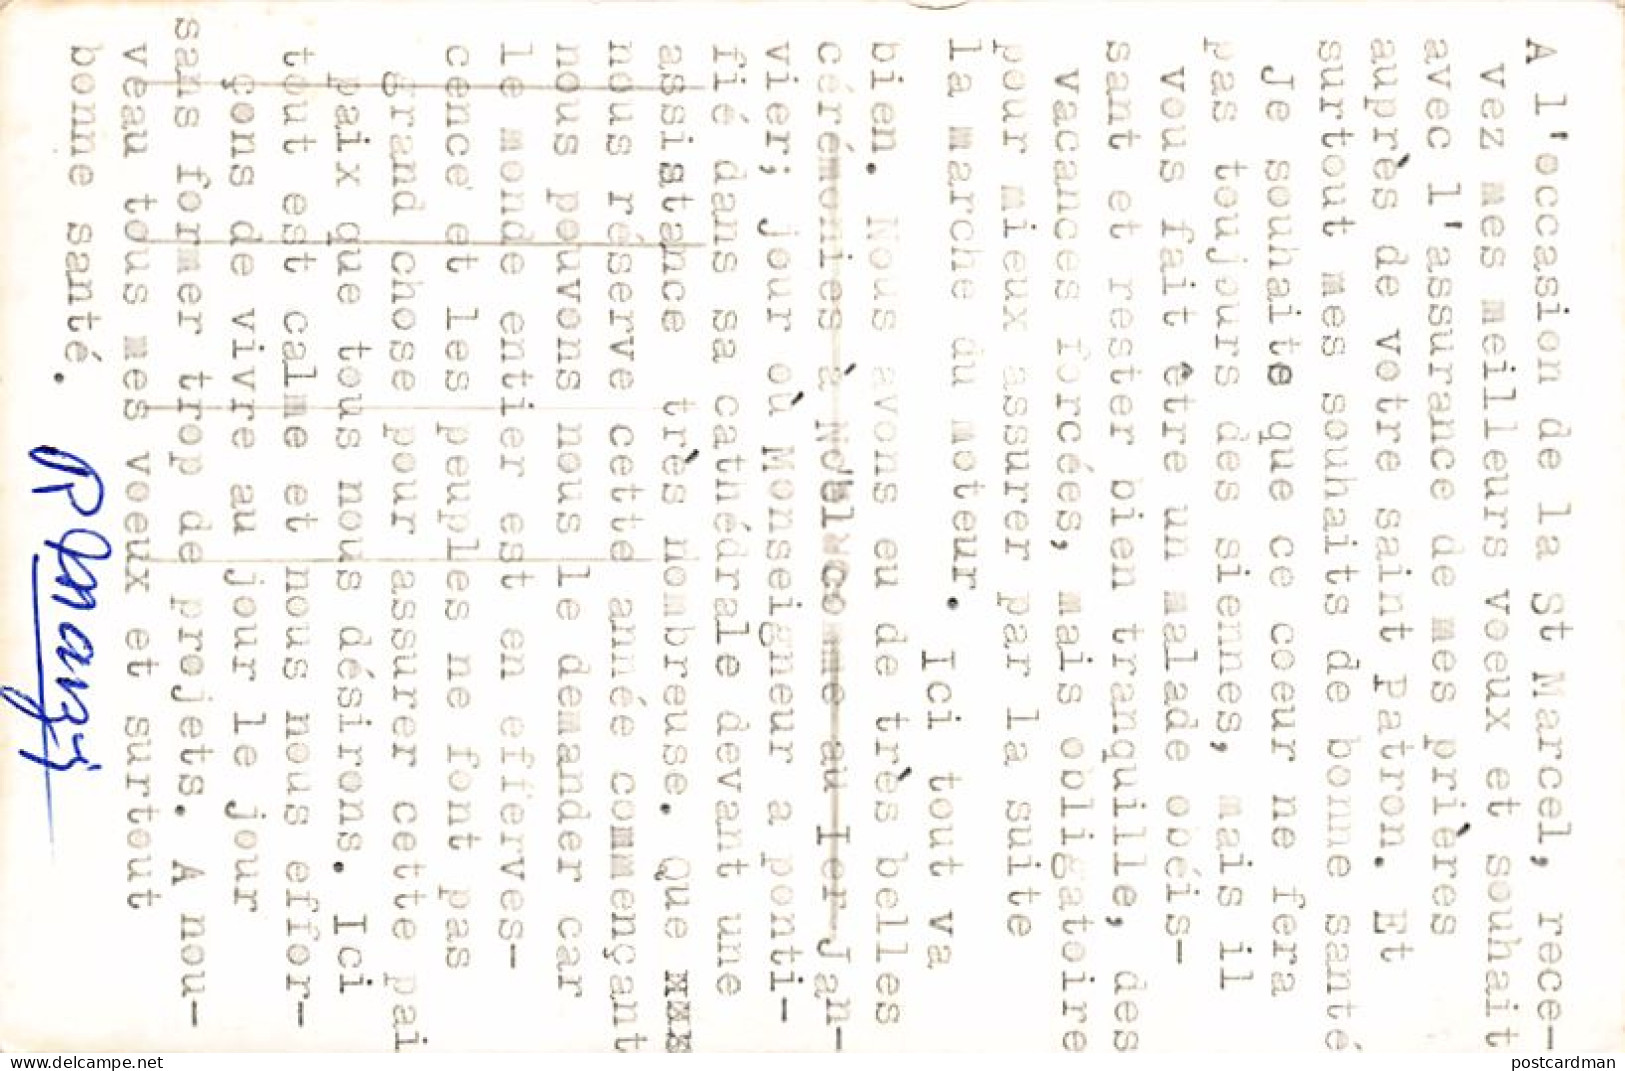 A l'occasion de la St Marcel, rece-
vez mes meilleurs voeux et souhait
avec l'assurance de mes prières
auprès de votre saint Patron. Et
surtout mes souhaits de bonne santé
Je souhaite que ce coeur ne fera
pas toujours des siennes, mais il
vous fait être un malade obéis-
sant et rester bien tranquille, des
vacances forcées, mais obligatoire
pour mieux assurer par la suite
la marche du moteur. Ici tout va
bien. Nous avons eu de très belles
cérémonies à Noël comme au 1er Jan-
vier; jour où Monseigneur a ponti-
fié dans sa cathédrale devant une
assistance très nombreuse. Que xxx
nous réserve cette année commençant
nous pouvons nous le demander car
le monde entier est en efferves-
cence et les peuples ne font pas
grand chose pour assurer cette pai
paix que tous nous désirons. Ici
tout est calme et nous nous effor-
çons de vivre au jour le jour
sans former trop de projets. A nou-
veau tous mes voeux et surtout
bonne santé.
delcampe.net
postcardman